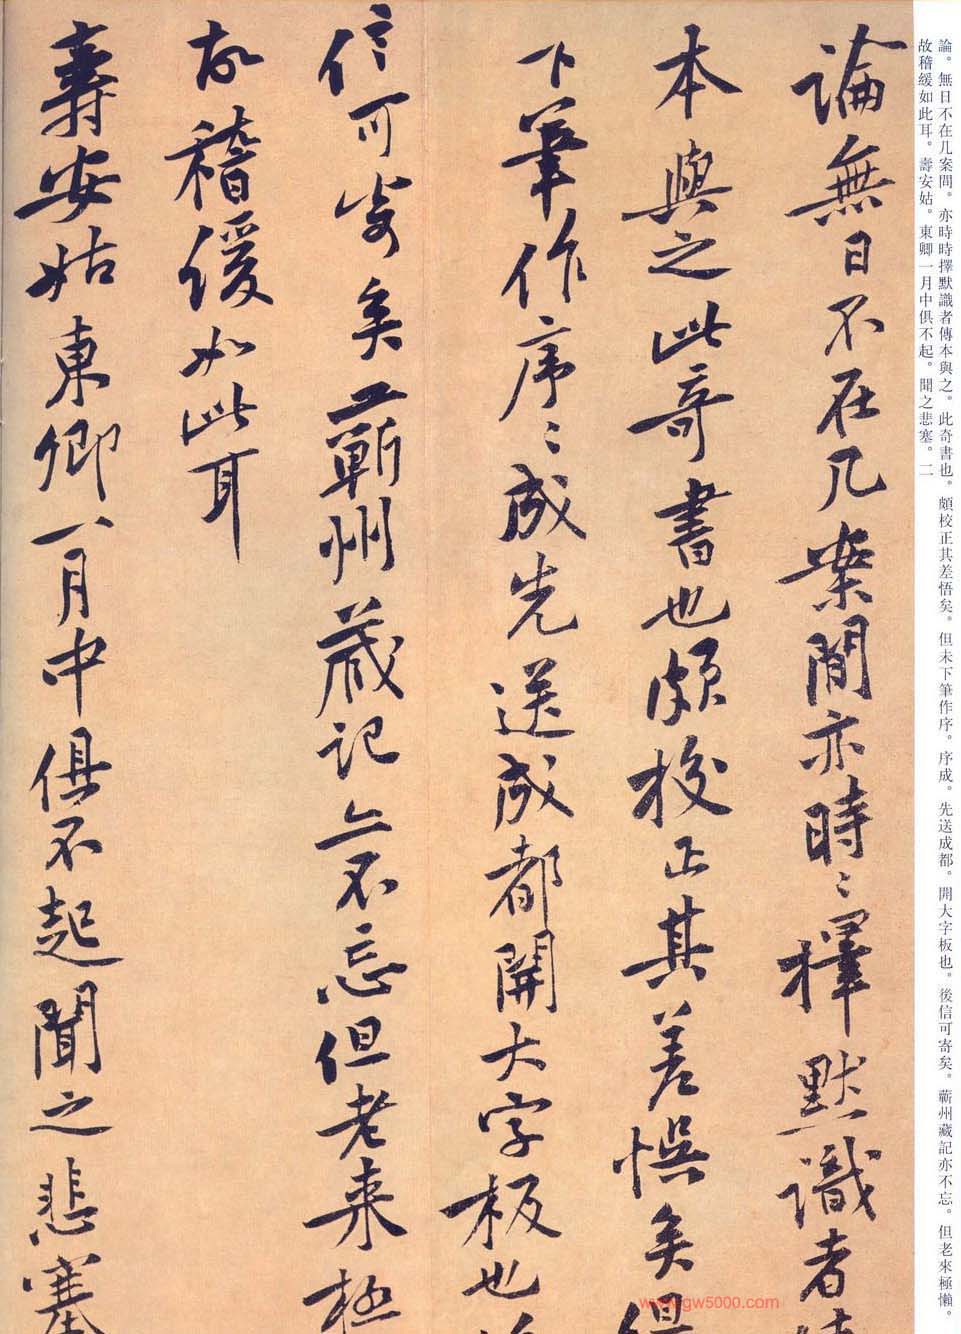 論。無日不在几案間。亦時時擇默識者傳本與之。此奇書也。頗校正其差悟矣。但未下筆作序。序成。先送成都。開大字板也。後信可寄矣。蘄州藏記亦不忘。但老來極懶。
故稽緩如此耳。壽安姑。東卿一月中俱不起。聞之悲塞。二
論無日不在几案間亦時〻擇默識者
本與之此奇書也頗校正其差悞矣但
下筆作序〻成先送成都開大字板也
信可寄矣蘄州藏記亦不忘但老来極
故稽緩如此耳
壽安姑東卿一月中俱不起聞之悲塞
www.gw5000.com